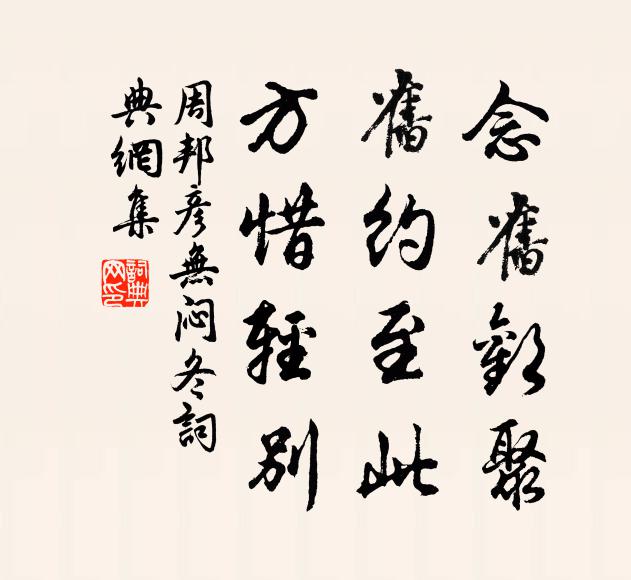 念舊歡聚
舊約至此
方惜輕別
周邦彥無悶冬詞
典網集
詞典
网印